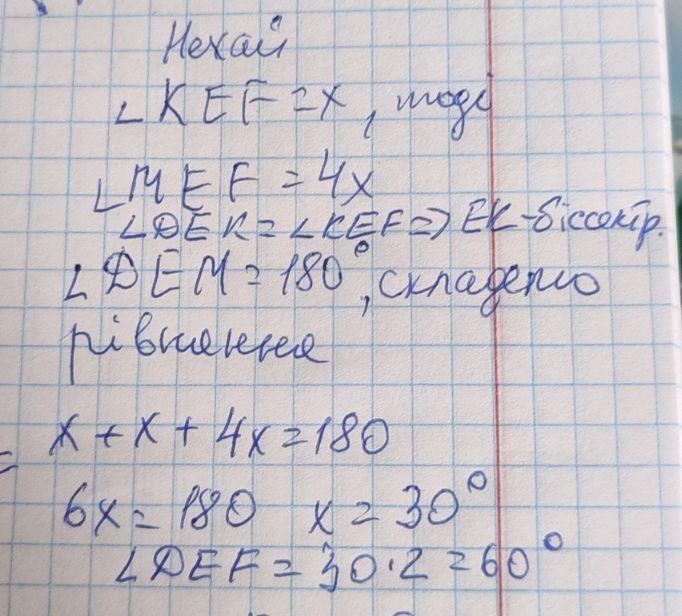 Нехай
∠KEF=x, тоді
∠MEF=4x
∠DEK=∠KEF=>EK-бісектр.
∠DEM=180°, складемо
рівняння
x+x+4x=180
=
6x=180 x=30°
∠DEF=30·2=60°